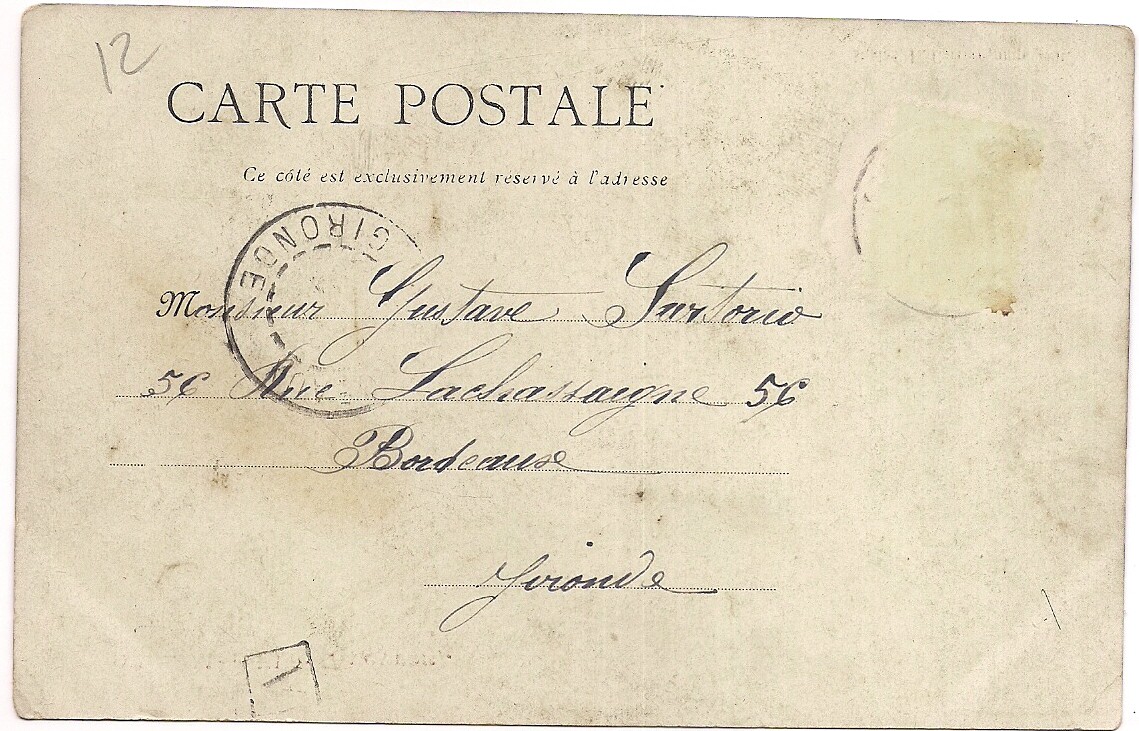 12
CARTE POSTALE
Ce côté est exclusivement réservé à l'adresse
GIRONDE
Monsieur Gustave Sartorio
56 Rue Lachassaigne 56
Bordeaux
Gironde